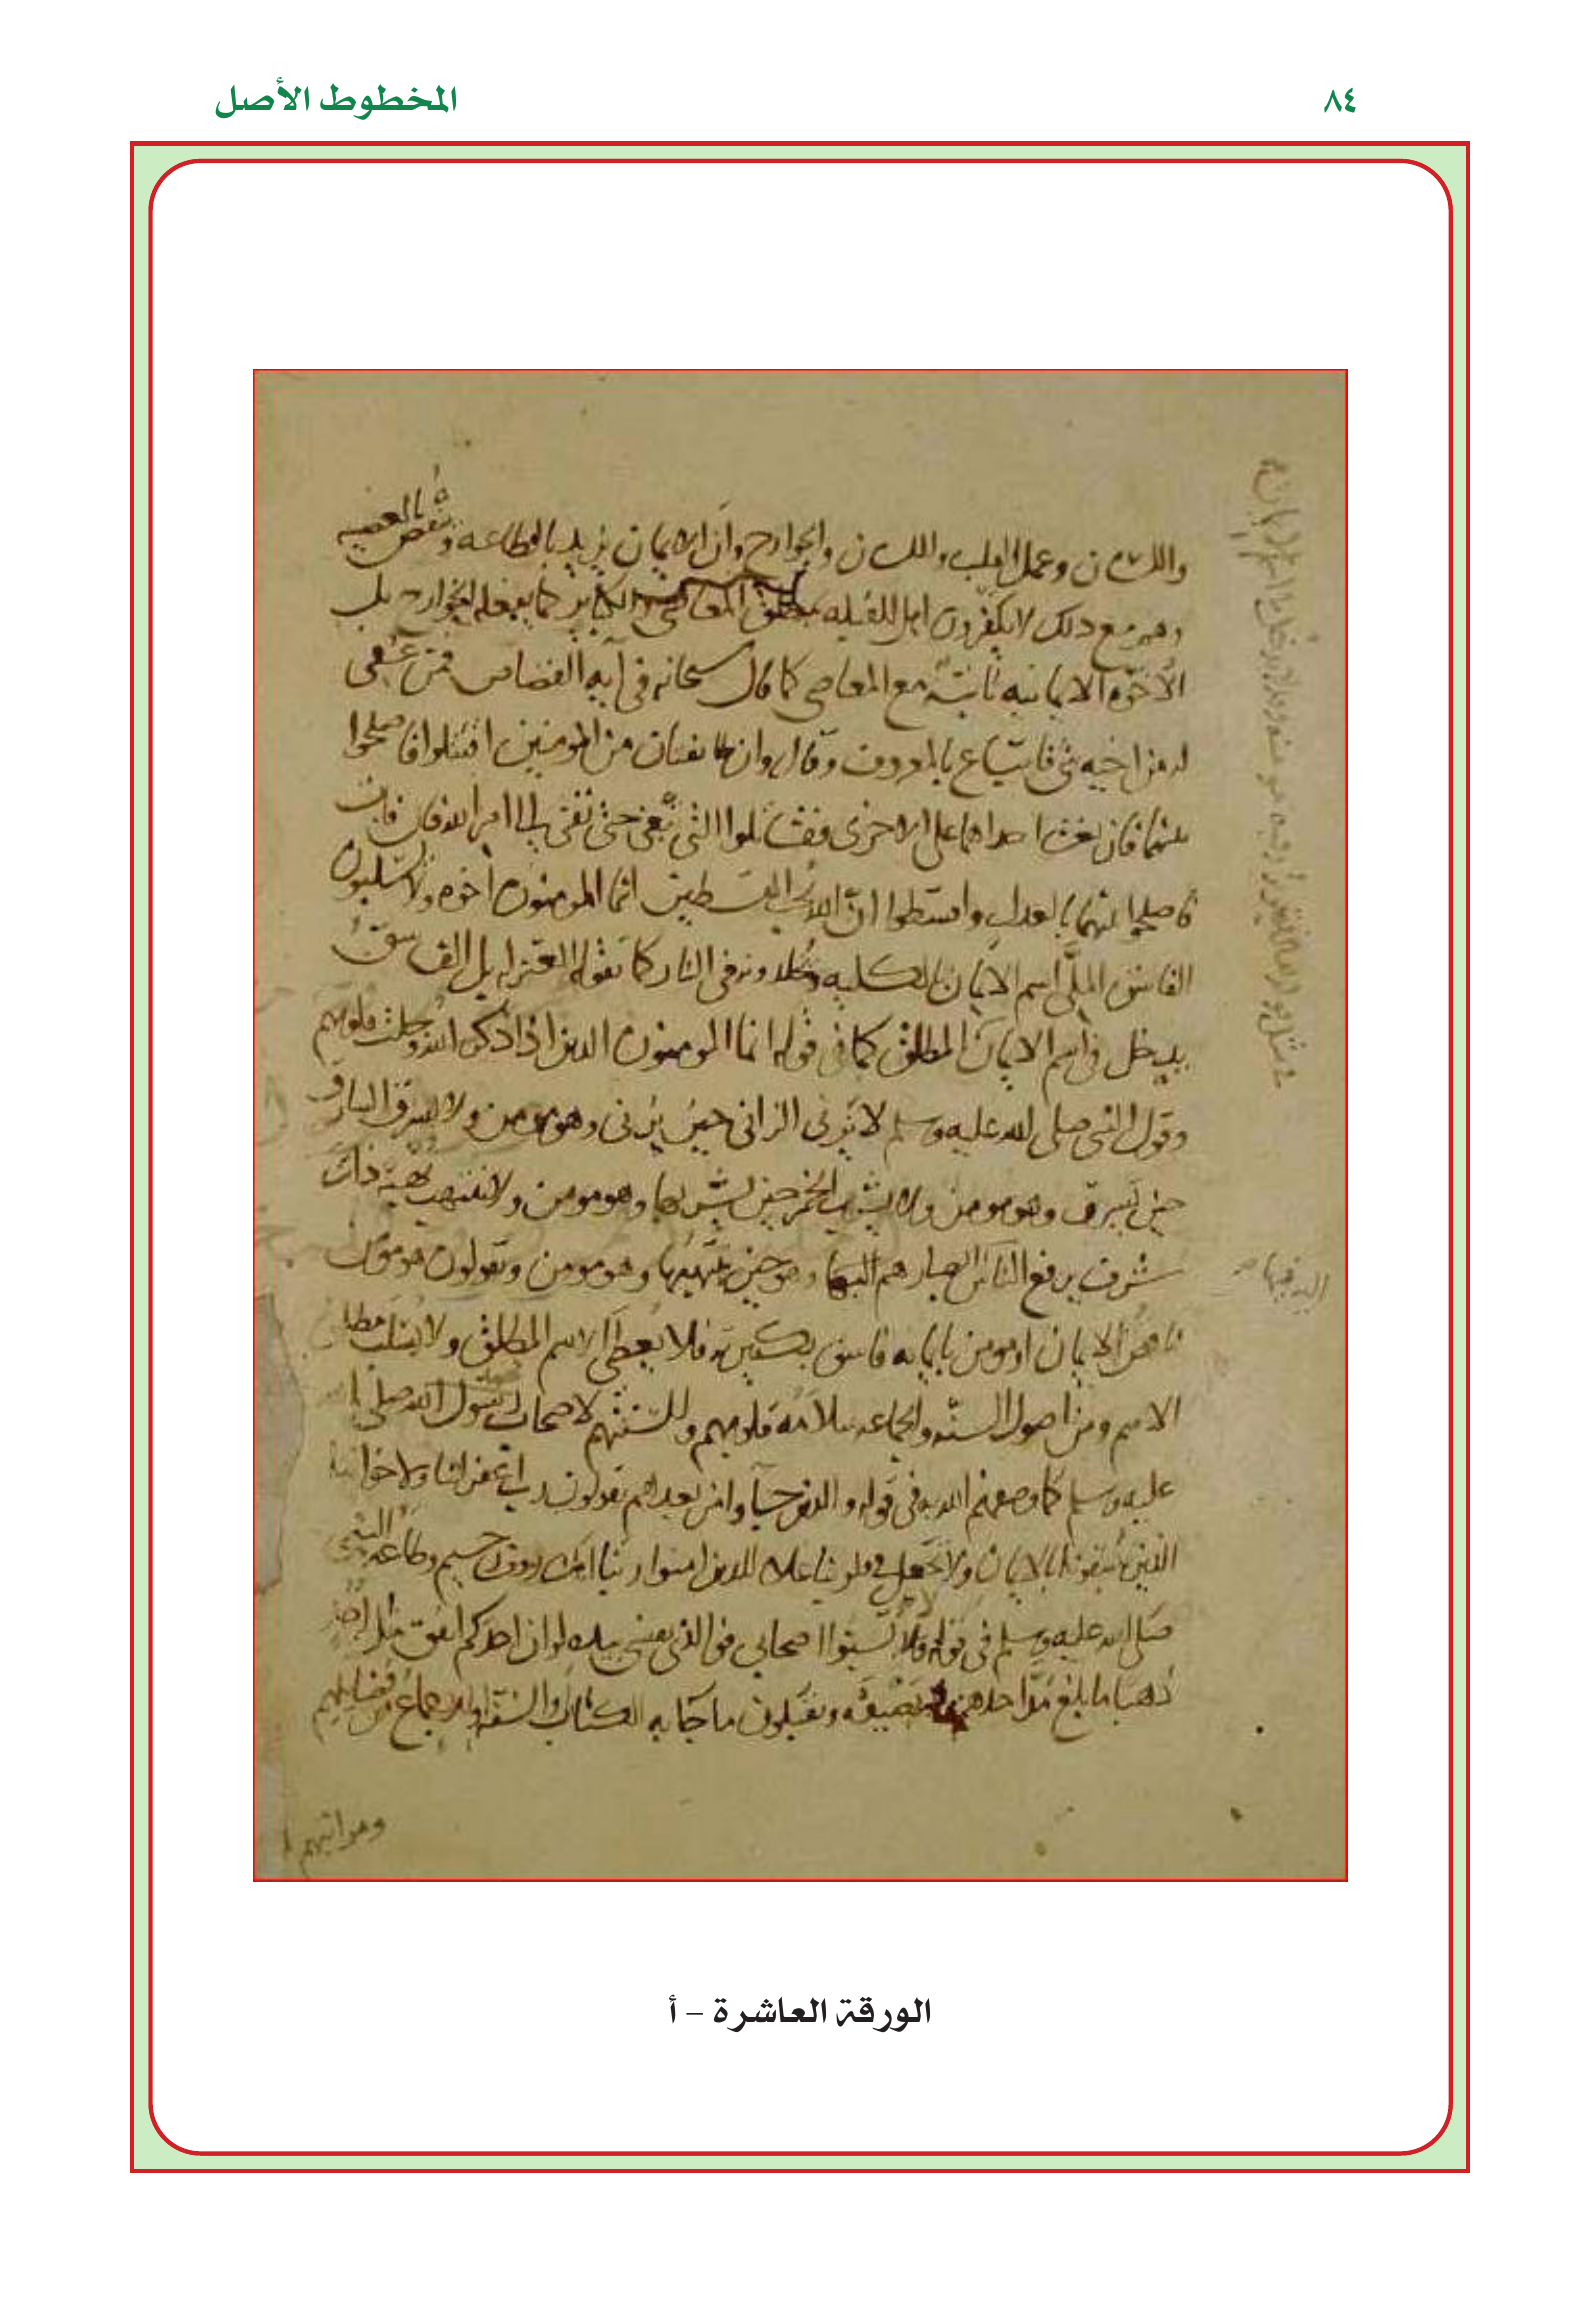 ٨٤
المخطوط الأصل
واللسان وعمل القلب واللسان والجوارح وان الايمان يزيد بالطاعه وينقص بالمعصيه
وهم مع ذلك لا يكفرون اهل القبله بمطلق المعاصي والكباير كما يفعله الخوارج بل
الاخوه الايمانيه ثابتة مع المعاصي كما قال سبحانه في آيه القصاص فمن عفى
له من اخيه شي فاتباع بالمعروف وقال وان طايفتان من المومنين اقتتلوا فاصلحوا
بينهما فان بغت احداهما على الاخرى فقاتلوا التي تبغي حتى تفي الى امر الله فان فات
فاصلحوا بينهما بالعدل واقسطوا ان الله يحب المقسطين انما المومنون اخوه ولا يسلبون
الفاسق الملي اسم الايمان بالكليه ويخلدونه في النار كما تقوله المعتزله بل الفاسق
يدخل في اسم الايمان المطلق كما في قوله انما المومنون الذين اذا ذكر الله وجلت قلوبهم
وقول النبي صلى الله عليه وسلم لا يزني الزاني حين يزني وهو مومن ولا يسرق السارق
حين يسرق وهو مومن ولا يشرب الخمر حين يشربها وهو مومن ولا ينتهب نهبة ذات
شرف يرفع الناس اليه فيها ابصارهم حين ينتهبها وهو مومن ويقولون هو مومن
ناقص الايمان او مومن بايمانه فاسق بكبيرته فلا يعطى الاسم المطلق ولا يسلب مطلق
الاسم ومن اصول السنه والجماعه سلامة قلوبهم والسنتهم لاصحاب رسول الله صلى الله
عليه وسلم كما وصفهم الله به في قوله والذين جاوا من بعدهم يقولون ربنا اغفر لنا ولاخواننا
الذين سبقونا بالايمان ولا تجعل في قلوبنا غلا للذين امنوا ربنا انك روف رحيم وطاعه النبي
صلى الله عليه وسلم في قوله لا تسبوا اصحابي فوالذي نفسي بيده لو ان احدكم انفق مثل احد
ذهبا ما بلغ مد احدهم ولا نصيفه ويقبلون ما جا به الكتاب والسنة والاجماع من فضايلهم
ومراتبهم
الورقة العاشرة – أ